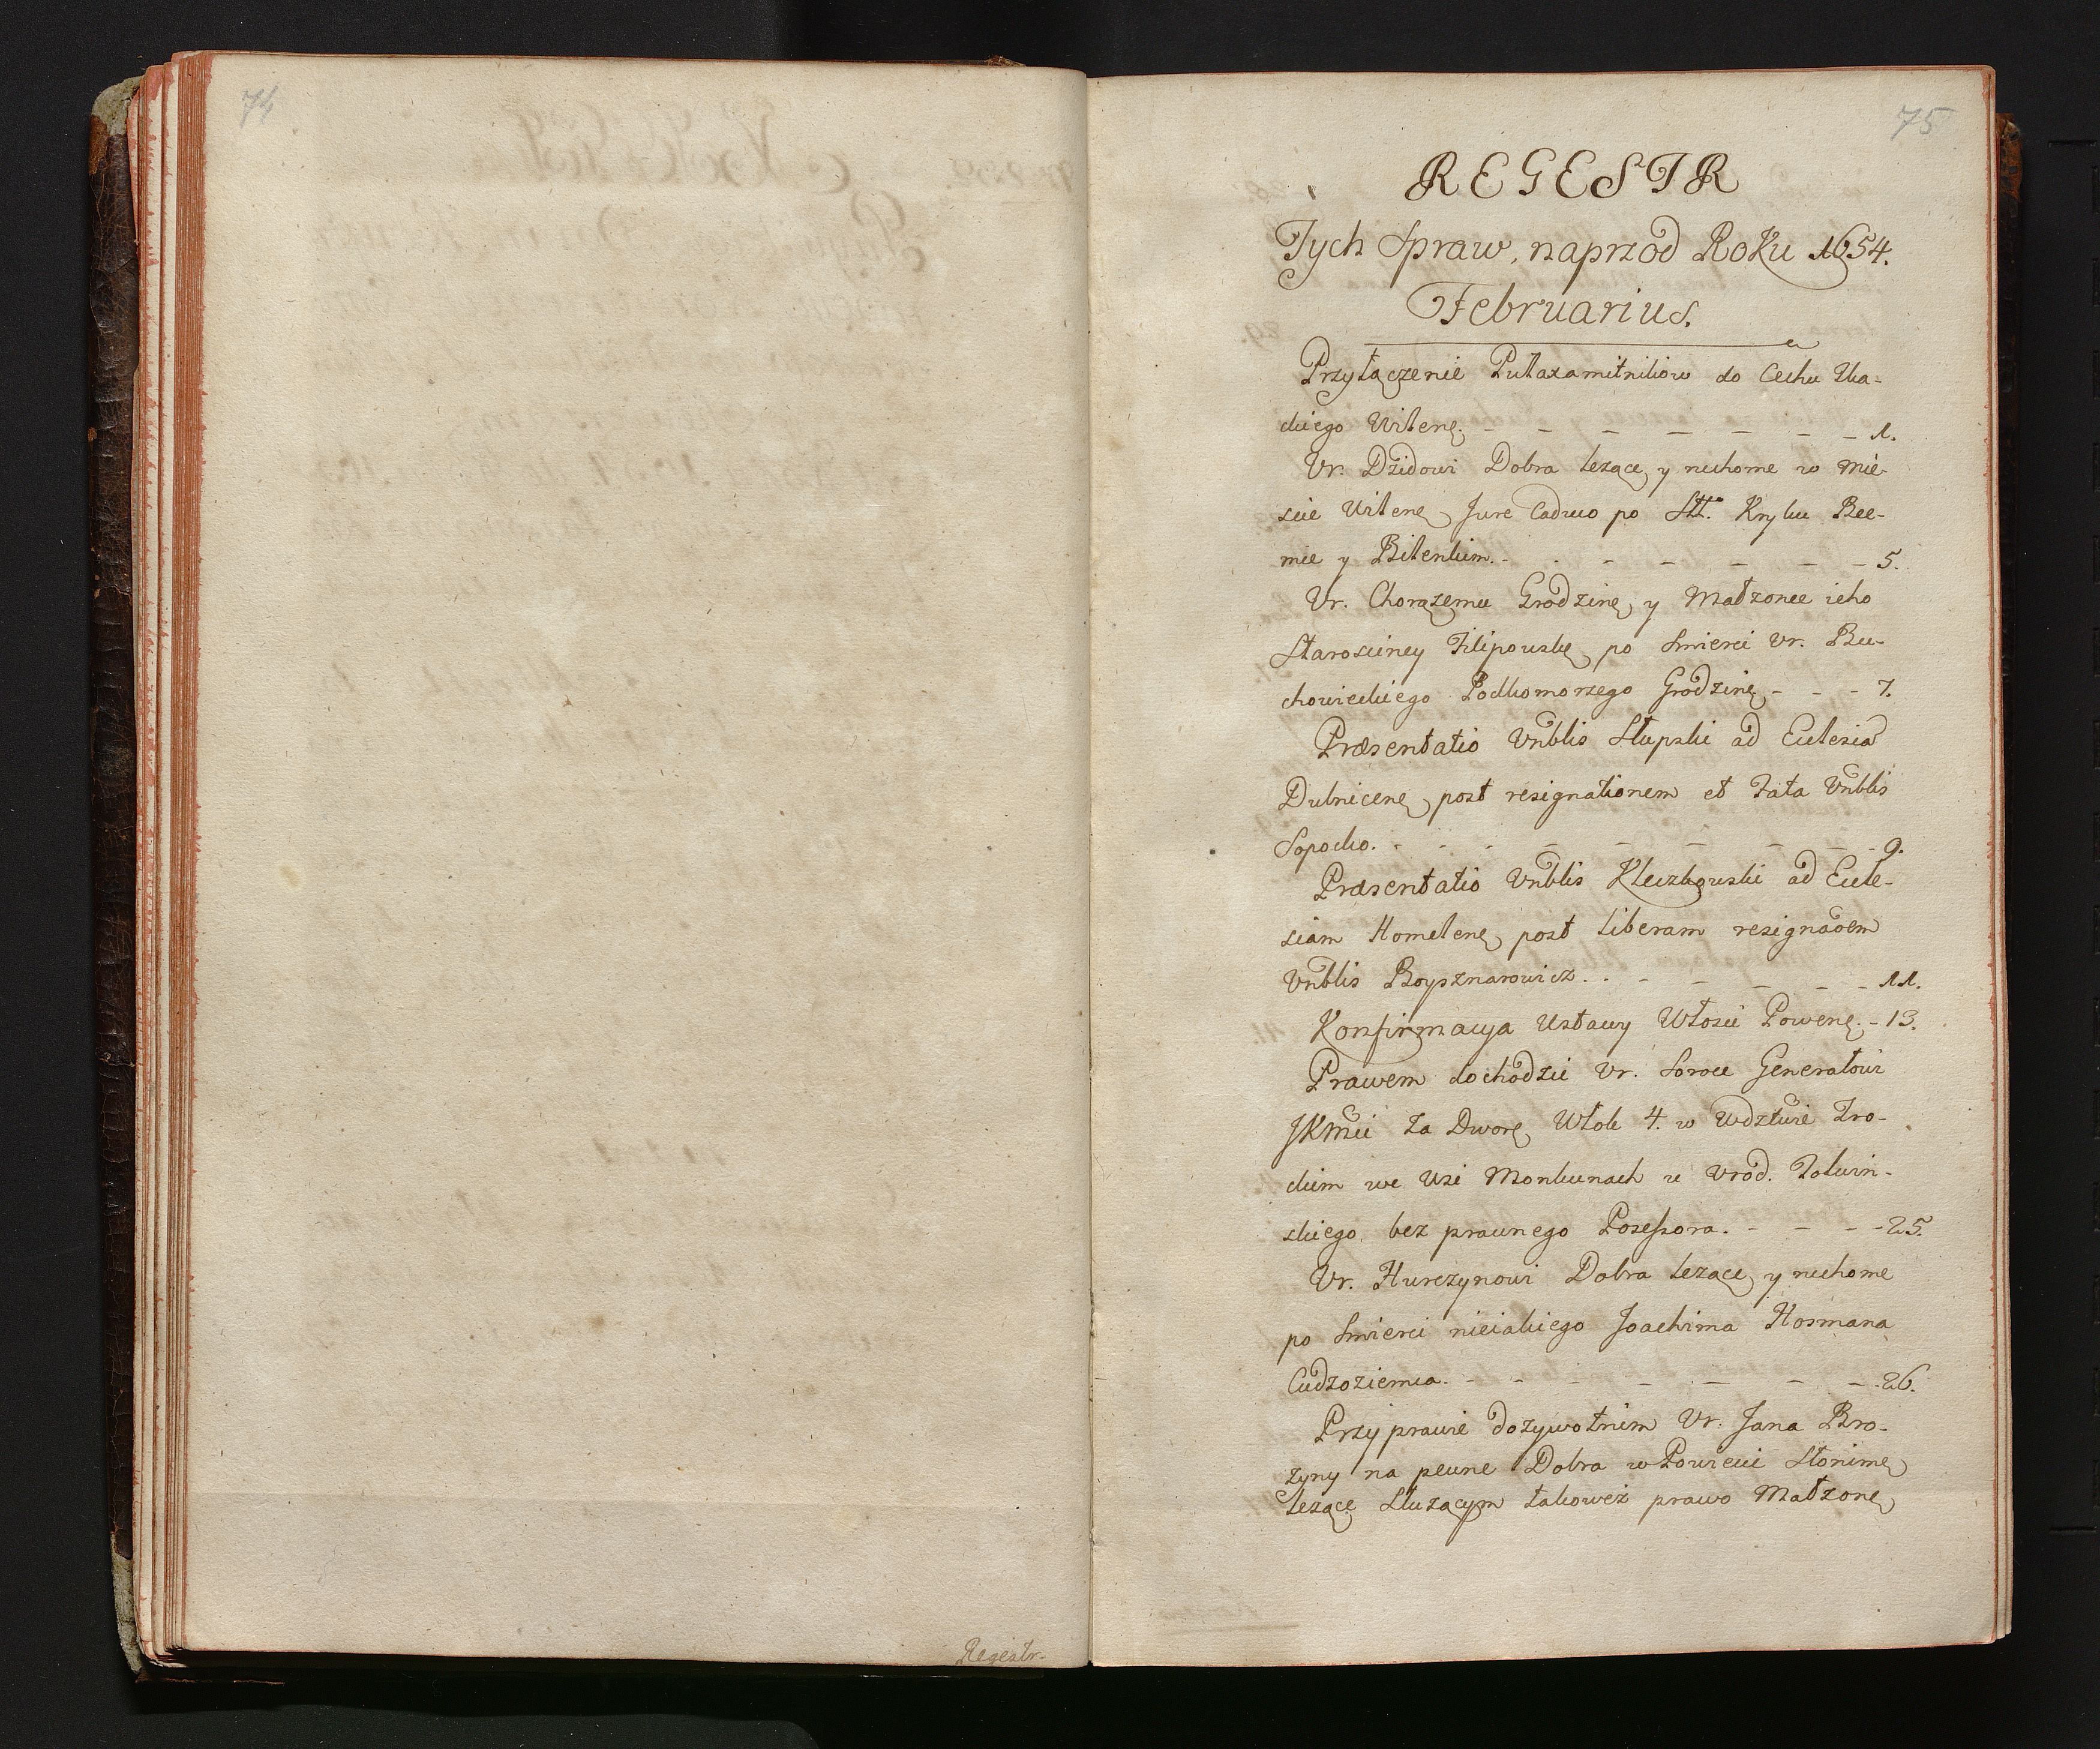 74
Regestr.
75
REGESTR
Tych Spraw, naprzod Roku 1654.
Februarius.
Przyłączenie do Cechu Tka-
ckiego Wilenę. - - - - - - - 1.
Ur. Dzidowi Dobra lezące y ruchome w mie-
scie Wilenę Jure Caduco po Stt. Kryku Bee-
mie y Bitenkim. - - - - - - 5.
Ur. Chorązemu Grodzinę y Małzonce ieho
Starosciney Filipouskę po Smierci Ur. Bu-
chowieckiego Podkomorzego Grodzinę - - - 7.
Præsentatio Vnblis Słupski ad Eclesia
Dubnicenę post resignationem et Fata Vnblis
Sopocko. - - - - - - - 9.
Præsentatio Vnblis Kleczkouski ad Ecle-
siam Homelenę post liberam resignaoem
Vnblis Boysznarowicz. - - - - - - 11.
Konfirmacya Ustawy Włosci Powenę. - 13.
Prawem dochodzic Ur. Soroce Generałowi
JKMci za Dworę Włok 4. w Wdztwie Tro-
ckim we Wsi Monkunach u Urod. Tolwin-
skiego, bez prawnego Posessora. - - - - 25.
Ur. Hurczynowi Dobra lezące y ruchome
po Smierci nieiakiego Joachima Hosmana
Cudzoziemca. - - - - - - - 26.
Przy prawie dozywotnim Ur. Jana Bro-
zyny na pewne Dobra w Powiecie Słonimę
lezące Słuzącym takowez prawo Małzonę